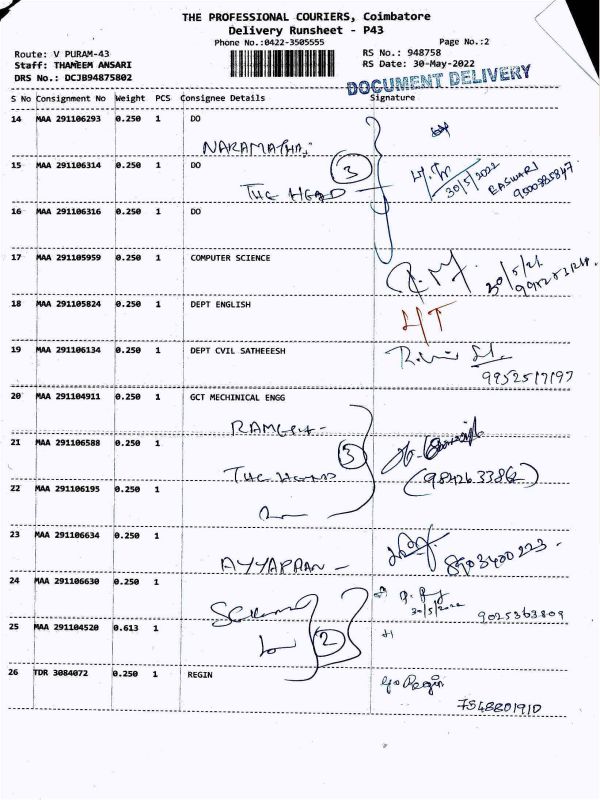 THE PROFESSIONAL COURIERS, Coimbatore
Delivery Runsheet - P43
Phone No.:0422-3505555 Page No.:2
Route: V PURAM-43 RS No.: 948758
Staff: THAMEEM ANSARI RS Date: 30-May-2022
DRS No.: DCJB94875802
DOCUMENT DELIVERY
S No Consignment No Weight PCS Consignee Details Signature
14 MAA 291106293 0.250 1 DO
15 MAA 291106314 0.250 1 DO
3
THE HEAD
30/5/2022 EASWARI
16 MAA 291106316 0.250 1 DO
17 MAA 291105959 0.250 1 COMPUTER SCIENCE
18 MAA 291105824 0.250 1 DEPT ENGLISH
19 MAA 291106134 0.250 1 DEPT CVIL SATHEEESH
9952517197
20 MAA 291104911 0.250 1 GCT MECHINICAL ENGG
21 MAA 291106588 0.250 1
3
22 MAA 291106195 0.250 1
23 MAA 291106634 0.250 1
AYYAPPAN - 8903400223 -
24 MAA 291106630 0.250 1
30/5/2022 9025363809
25 MAA 291104520 0.613 1
2
26 TDR 3084072 0.250 1 REGIN
7548801910